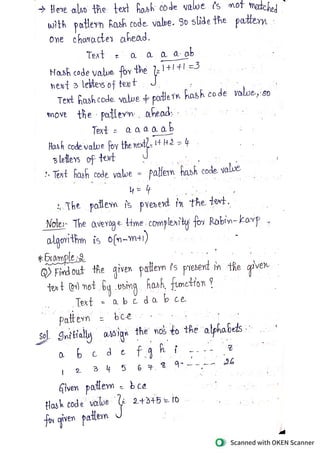 → Here also the text hash code value is not matched
with pattern hash code value. So slide the pattern
one character ahead.
Text = a a a a ab
Hash code value for the } = 1+1+1 = 3
next 3 letters of text
Text hash code value ≠ pattern hash code value, so
move the pattern ahead.
Text = a a a a a b
Hash code value for the next } = 1+1+2 = 4
3 letters of text
∴ Text hash code value = pattern hash code value
4 = 4
∴ The pattern is present in the text.
Note:- The average time complexity for Rabin-Karp
algorithm is O(n-m+1)
* Example:2
Q) Find out the given pattern is present in the given
text (or) not by using hash function?
Text = a b c d a b c e
pattern = bce
Sol Initially assign the nos to the alphabets.
a b c d e f g h i ---- z
1 2 3 4 5 6 7 8 9 ----- 26
Given pattern = bce
Hash code value } = 2+3+5 = 10
for given pattern
Scanned with OKEN Scanner